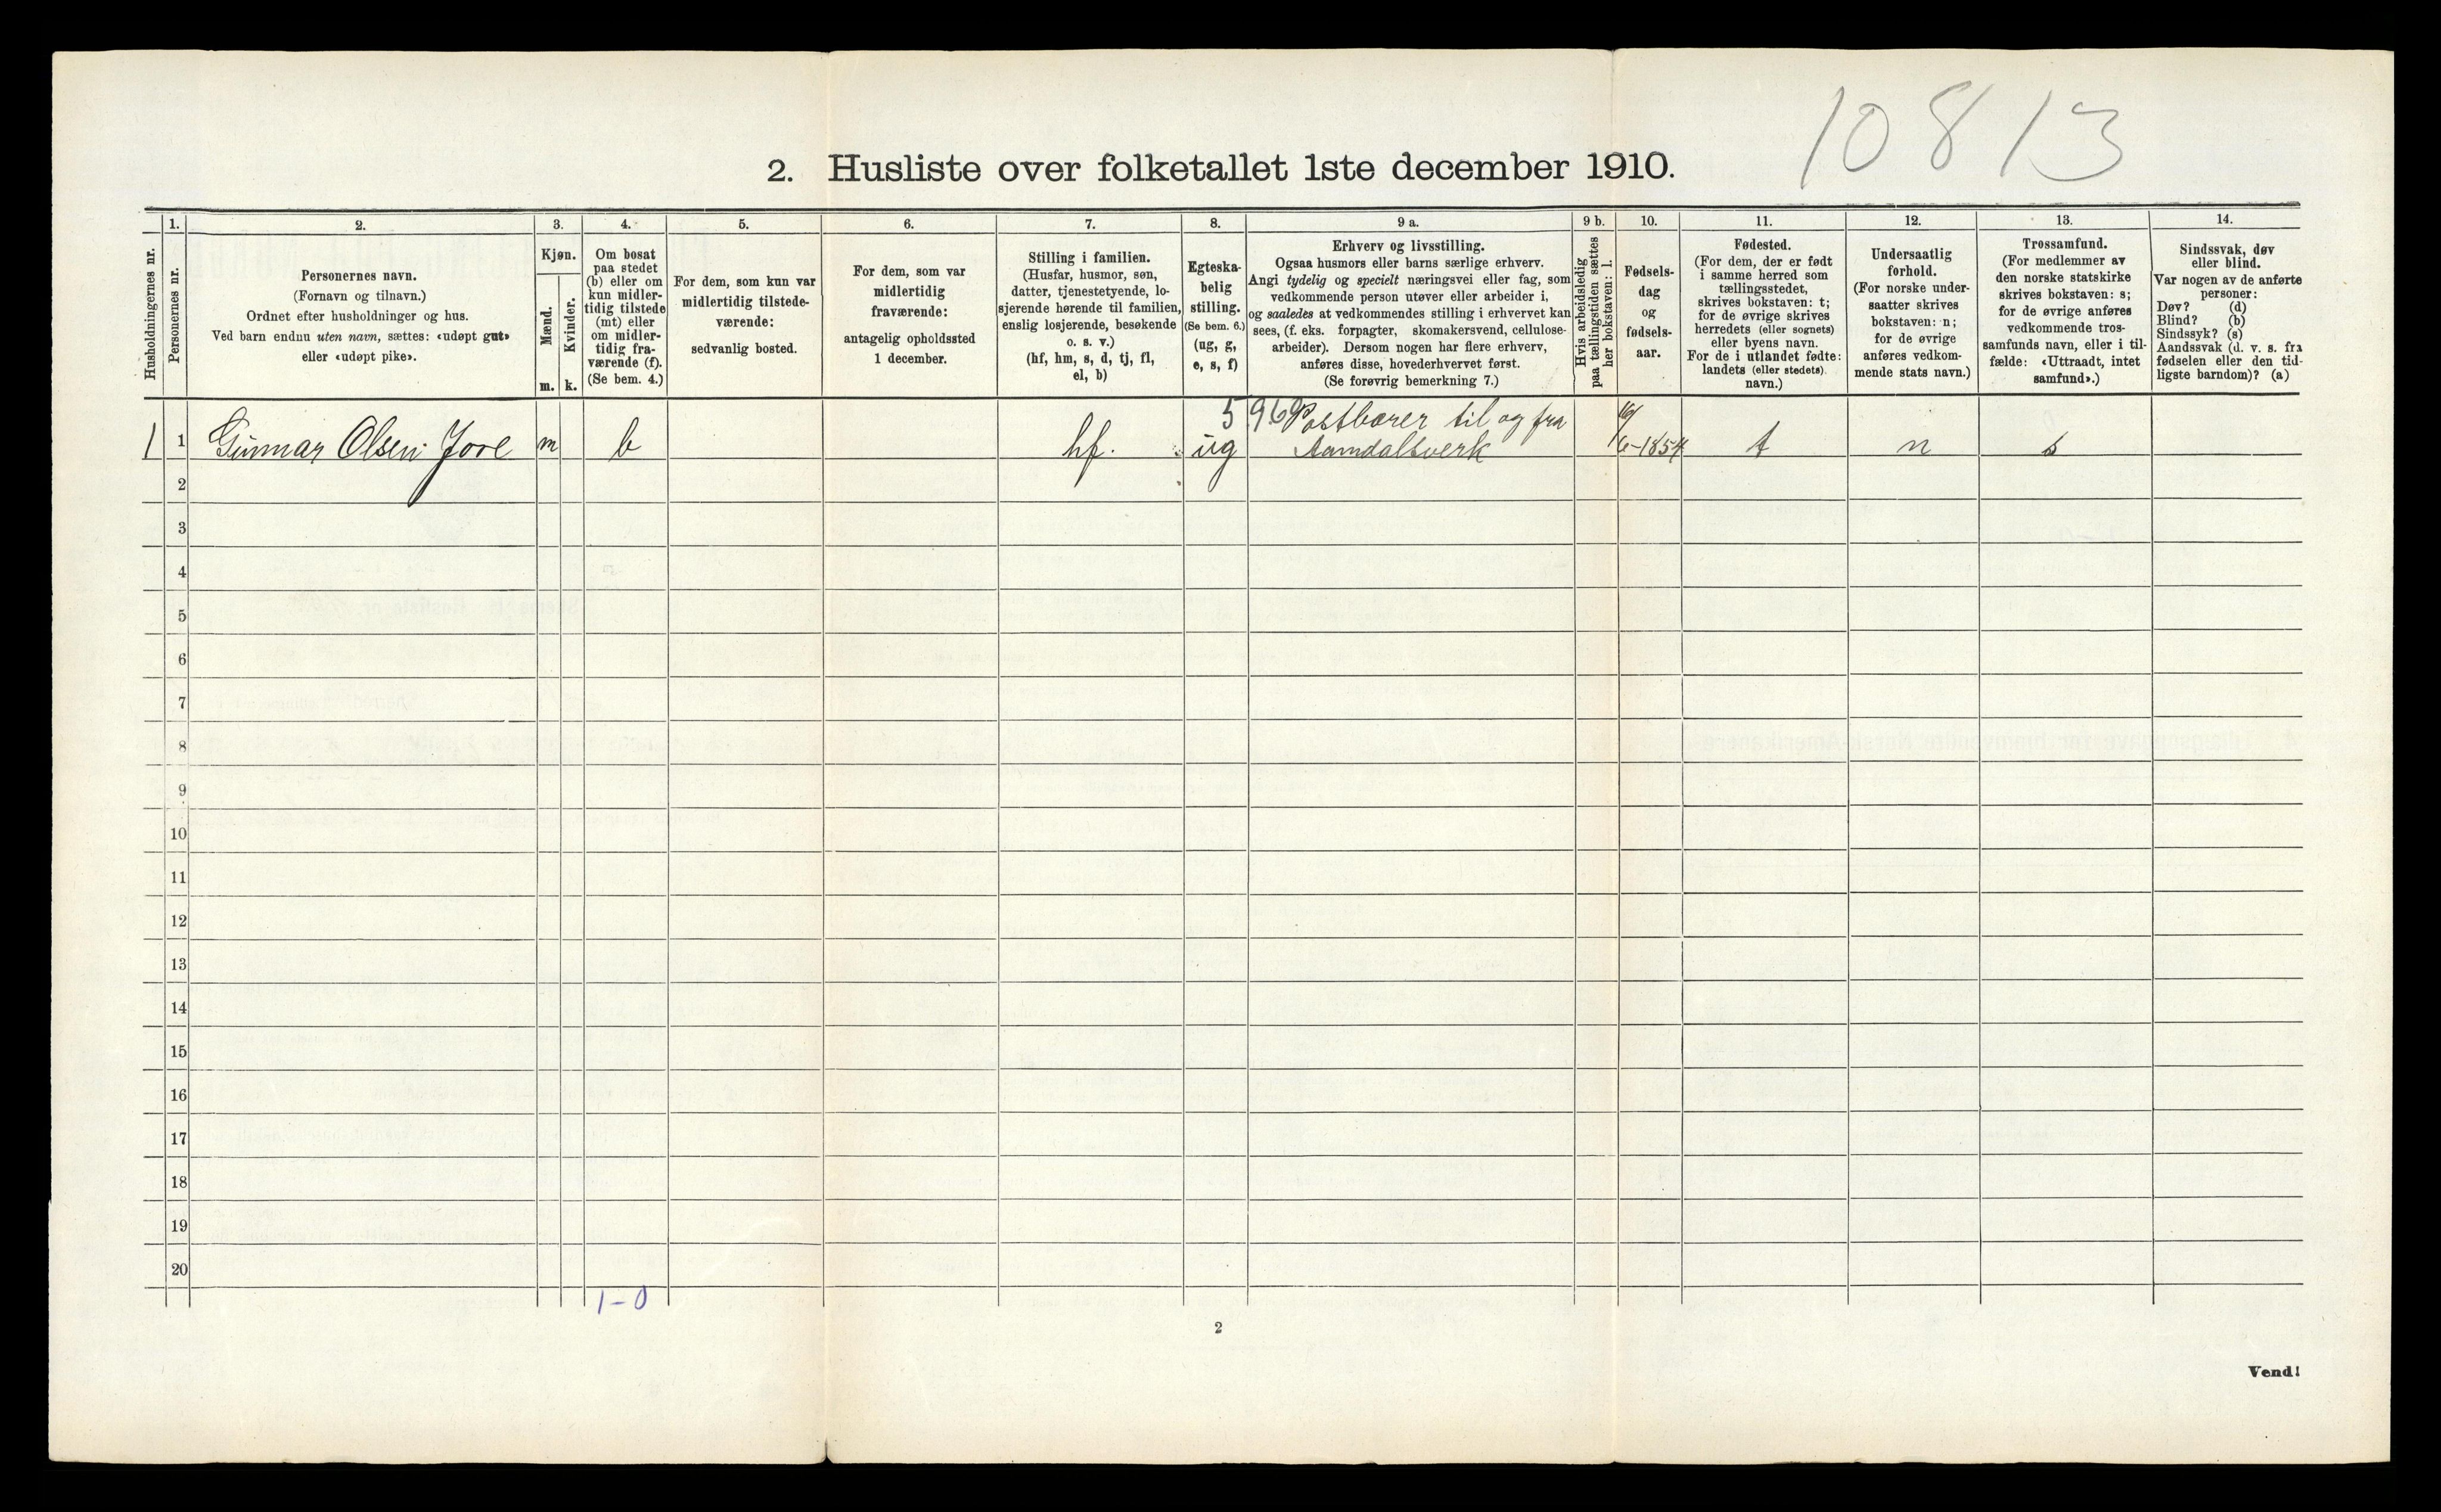 10813
2. Husliste over folketallet 1ste december 1910.
Husholdningernes nr.
1.
Personernes nr.
2.
Personernes navn.
(Fornavn og tilnavn.)
Ordnet efter husholdninger og hus.
Ved barn endnu uten navn, sættes: «udøpt gut»
eller «udøpt pike».
3.
Kjøn.
Mænd.
Kvinder.
m. k.
4.
Om bosat
paa stedet
(b) eller om
kun midler-
tidig tilstede
(mt) eller
om midler-
tidig fra-
værende (f).
(Se bem. 4.)
5.
For dem, som kun var
midlertidig tilstede-
værende:
sedvanlig bosted.
6.
For dem, som var
midlertidig
fraværende:
antagelig opholdssted
1 december.
7.
Stilling i familien.
(Husfar, husmor, søn,
datter, tjenestetyende, lo-
sjerende hørende til familien,
enslig losjerende, besøkende
o. s. v.)
(hf, hm, s, d, tj, fl,
el, b)
8.
Egteska-
belig
stilling.
(Se bem. 6.)
(ug, g,
e, s, f)
9 a.
Erhverv og livsstilling.
Ogsaa husmors eller barns særlige erhverv.
Angi tydelig og specielt næringsvei eller fag, som
vedkommende person utøver eller arbeider i,
og saaledes at vedkommendes stilling i erhvervet kan
sees, (f. eks. forpagter, skomakersvend, cellulose-
arbeider). Dersom nogen har flere erhverv,
anføres disse, hovederhvervet først.
(Se forøvrig bemerkning 7.)
9 b.
Hvis arbeidsledig
paa tællingstiden sættes
her bokstaven: l.
10.
Fødsels-
dag
og
fødsels-
aar.
11.
Fødested.
(For dem, der er født
i samme herred som
tællingsstedet,
skrives bokstaven: t;
for de øvrige skrives
herredets (eller sognets)
eller byens navn.
For de i utlandet fødte:
landets (eller stedets)
navn.)
12.
Undersaatlig
forhold.
(For norske under-
saatter skrives
bokstaven: n;
for de øvrige
anføres vedkom-
mende stats navn.)
13.
Trossamfund.
(For medlemmer av
den norske statskirke
skrives bokstaven: s;
for de øvrige anføres
vedkommende tros-
samfunds navn, eller i til-
fælde: «Uttraadt, intet
samfund».)
14.
Sindssvak, døv
eller blind.
Var nogen av de anførte
personer:
Døv? (d)
Blind? (b)
Sindssyk? (s)
Aandssvak (d. v. s. fra
fødselen eller den tid-
ligste barndom)? (a)
5 969 Postbærer til og fra
1 1 Gunnar Olsen Jore m b hf. ug Aamdalsverk 6-1854 t n s
2
3
4
5
6
7
8
9
10
11
12
13
14
15
16
17
18
19
20
1-0
2
Vend!